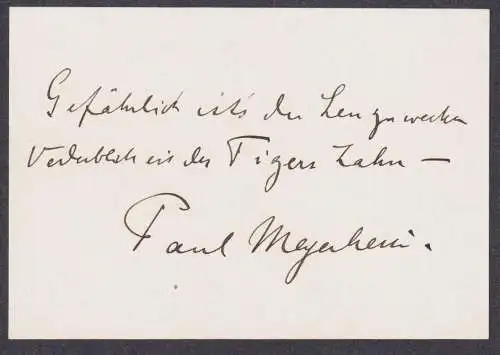 Gefährlich ist's den Leu zu wecken
Verderblich ist des Tigers Zahn —
Paul Meyerheim.